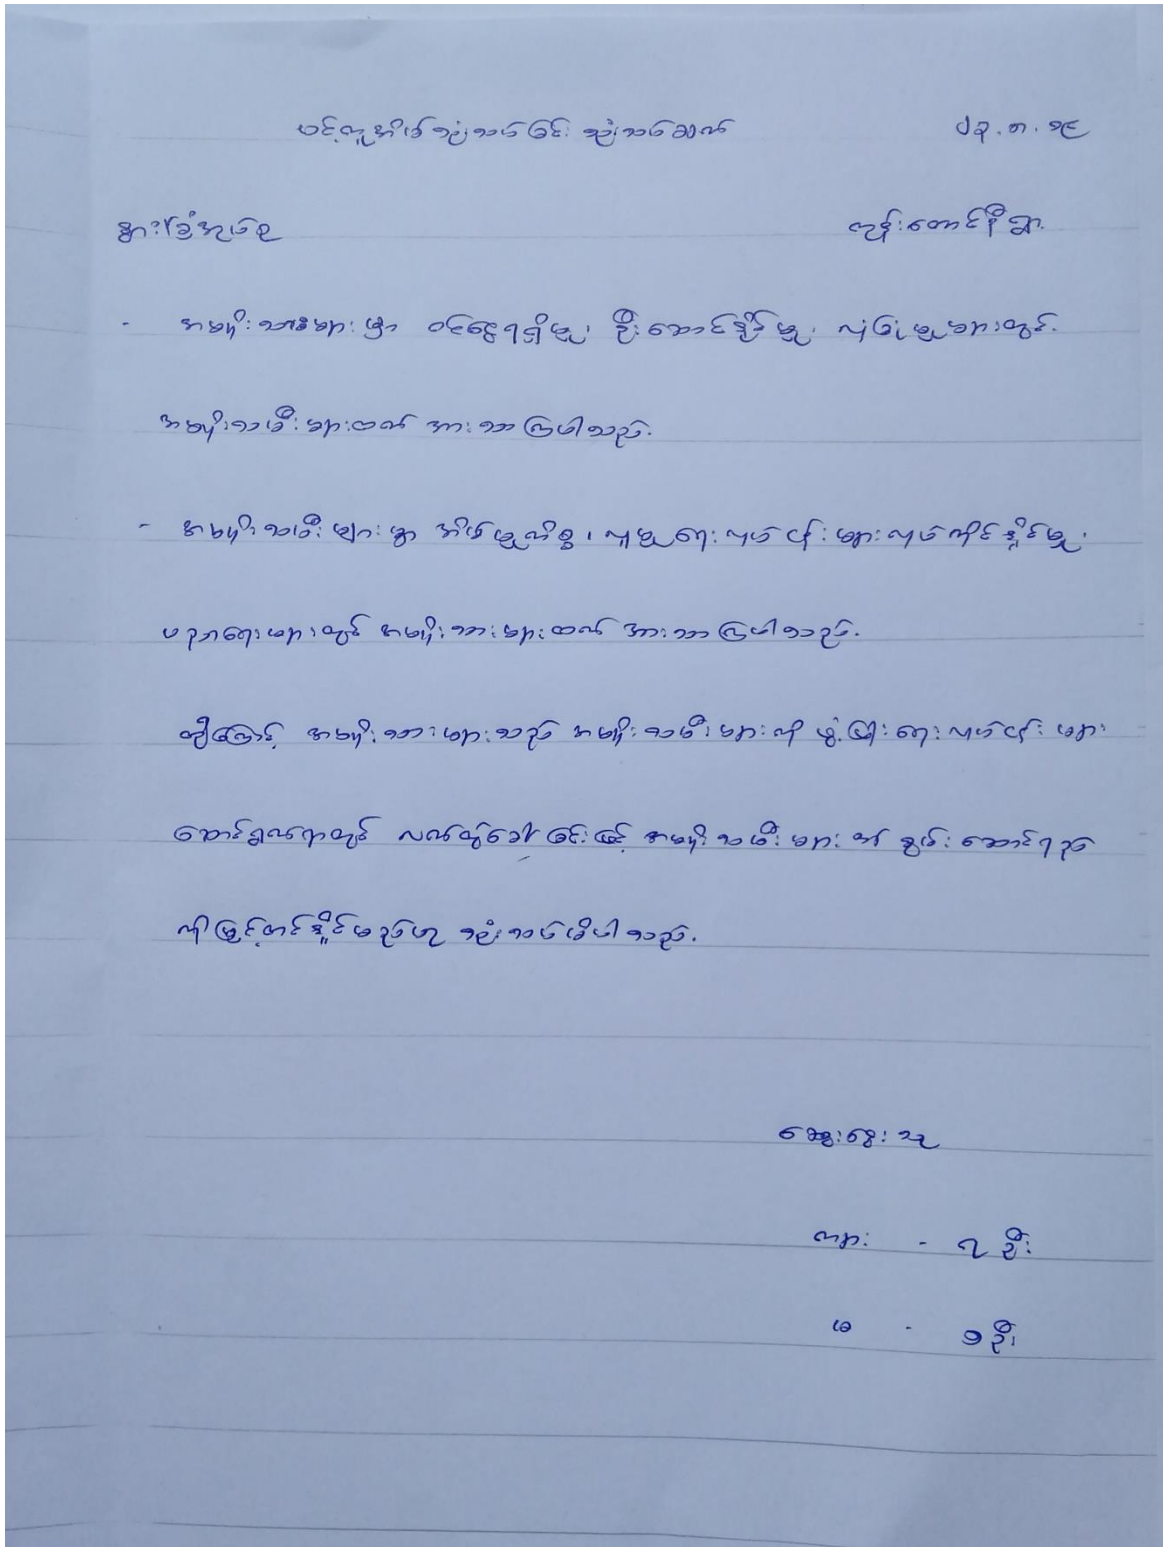 ပင့်ကူအိမ်သုံးသပ်ခြင်း သုံးသပ်ချက် ၂၃.၈.၁၉
နွား/ခြံအုပ်စု ကုန်းတောင်နီရွာ.
- အမျိုးသားများမှာ ဝင်ငွေရရှိမှု၊ ဦးဆောင်နိုင်မှု၊ လုံခြုံမှုများတွင်.
အမျိုးသမီးများထက် အားသာကြပါသည်.
- အမျိုးသမီးများမှာ အိမ်မှုကိစ္စ၊ လူမှုရေးလုပ်ငန်းများလုပ်ကိုင်နိုင်မှု၊
ပညာရေးများတွင် အမျိုးသားများထက် အားသာကြပါသည်.
ထို့ကြောင့် အမျိုးသားများသည် အမျိုးသမီးများကို ဖွံ့ဖြိုးရေးလုပ်ငန်းများ
ဆောင်ရွက်ရာတွင် လက်တွဲခေါ်ခြင်းဖြင့် အမျိုးသမီးများ၏ စွမ်းဆောင်ရည်
ကိုမြှင့်တင်နိုင်မည်ဟု သုံးသပ်မိပါသည်.
ဆွေးနွေးသူ
ကျား - ၇ ဦး
မ - ၁ ဦး